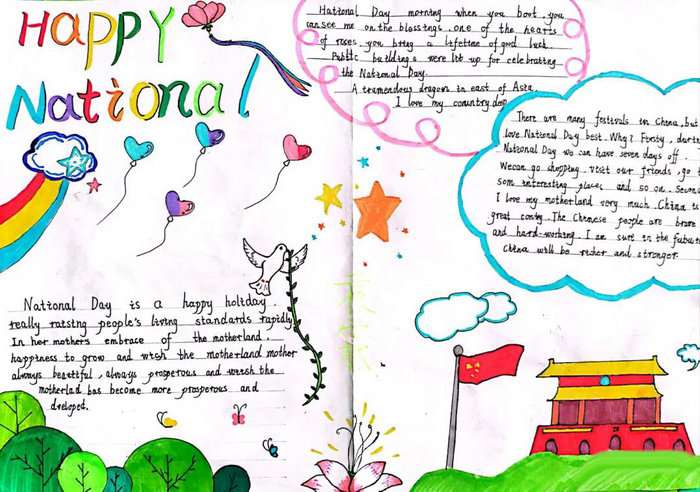 HAPPY
National
National Day morning when you boot, you
can see me on the blessings, one of the hearts
of roses, you bring a lifetime of good luck.
Public buildings were lit up for celebrating
the National Day.
A tramendous dragon in east of Asta.
I love my country deep
There are many festivals in China, but
love National Day best. Why? Firsty, durin
National Day we can have seven days off.
We can go shopping, visit our friends, go t
som interesting place, and so on. Secon
I love my motherland very much. China is
great contry. The Chinese people are brave
and hard-working. I am sure in the future
China will be richer and stronger.
National Day is a happy holiday.
really raising people's living standards rapidly
In her mothers embrace of the motherland.
happiness to grow and wish the motherland mother
always beautiful, always prosperous and wersh the
motherlad has become more prosperous and
dveloped.